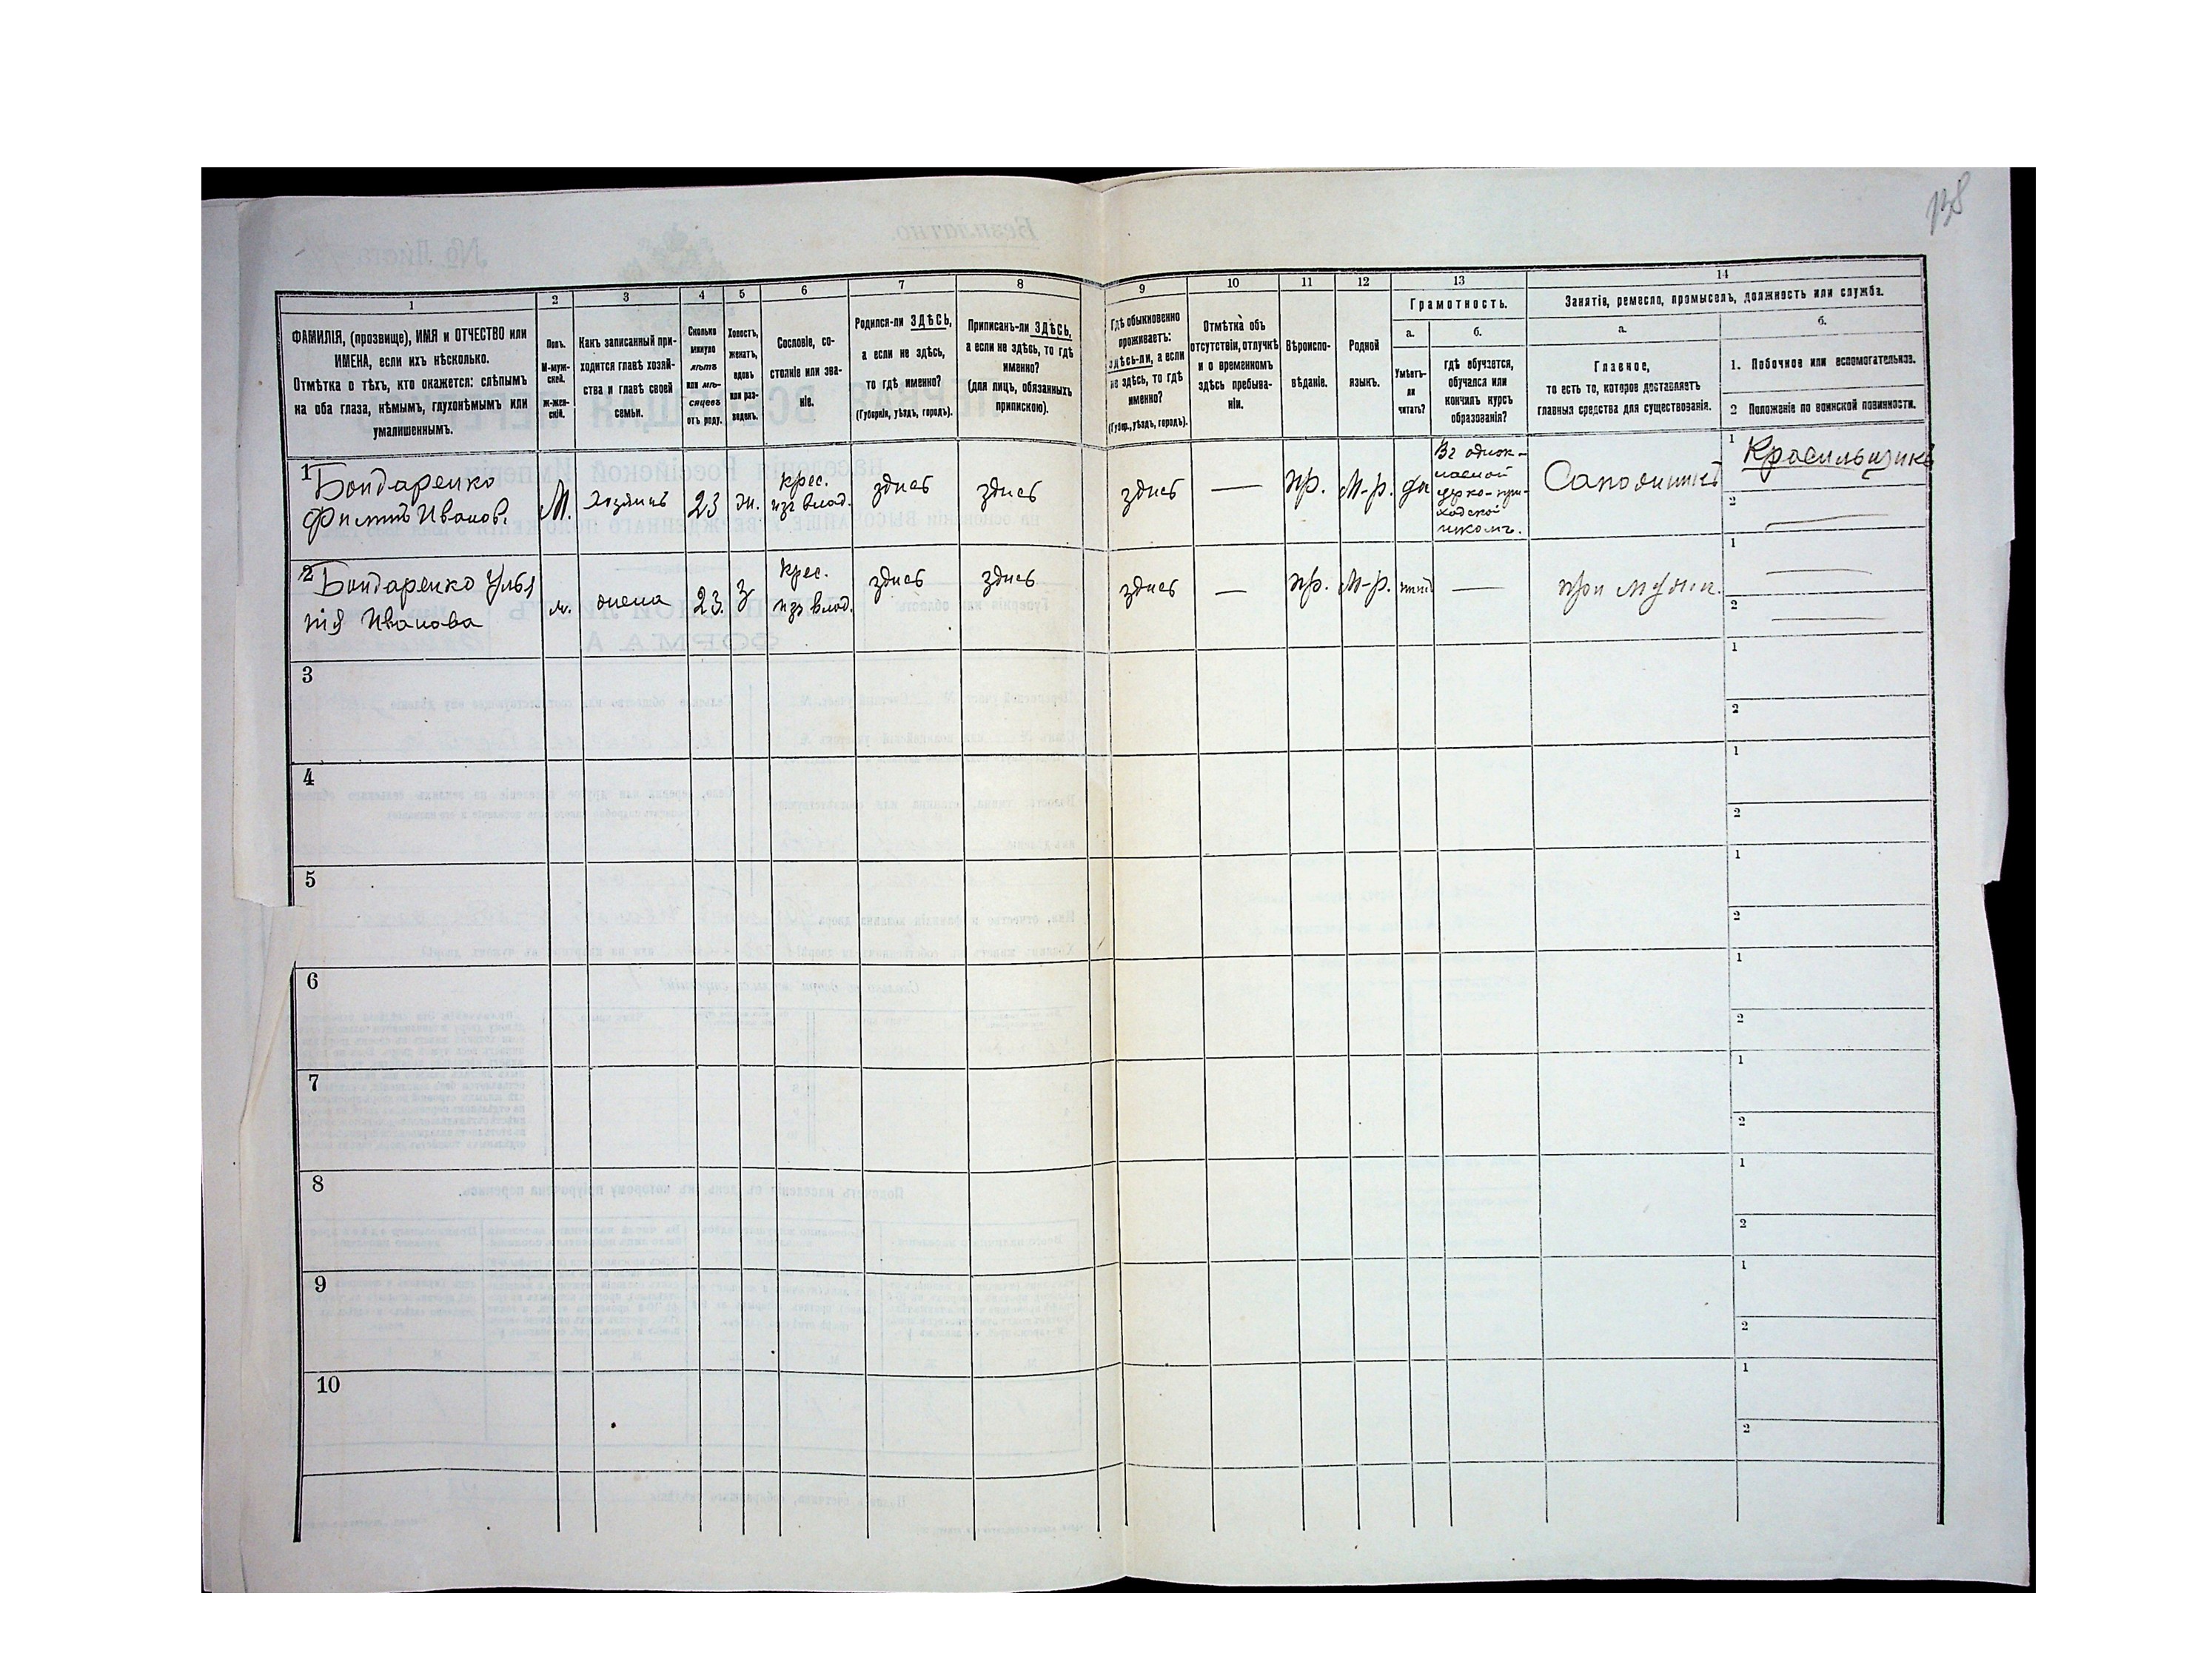 138
1 2 3 4 5 6 7 8 9 10 11 12 13 14
ФАМИЛІЯ, (прозвище), ИМЯ и ОТЧЕСТВО или
ИМЕНА, если ихъ нѣсколько.
Отмѣтка о тѣхъ, кто окажется: слѣпымъ
на оба глаза, нѣмымъ, глухонѣмымъ или
умалишеннымъ.
Полъ.
М-муж-
ской.
ж-жен-
скій.
Какъ записанный при-
ходится главѣ хозяй-
ства и главѣ своей
семьи.
Сколько
минуло
лѣтъ
или мѣ-
сяцевъ
отъ роду.
Холостъ,
женатъ,
вдовъ
или раз-
веденъ.
Сословіе, со-
стояніе или зва-
ніе.
Родился-ли ЗДѢСЬ,
а если не здѣсь,
то гдѣ именно?
(Губернія, уѣздъ, городъ).
Приписанъ-ли ЗДѢСЬ,
а если не здѣсь, то гдѣ
именно?
(для лицъ, обязанныхъ
припискою).
Гдѣ обыкновенно
проживаетъ:
здѣсь-ли, а если
не здѣсь, то гдѣ
именно?
(Губер., уѣздъ, городъ).
Отмѣтка объ
отсутствіи, отлучкѣ
и о временномъ
здѣсь пребыва-
ніи.
Вѣроиспо-
вѣданіе.
Родной
языкъ.
Грамотность.
а.
Умѣетъ-
ли
читать?
б.
гдѣ обучается,
обучался или
кончилъ курсъ
образованія?
Занятія, ремесло, промыселъ, должность или служба.
а.
Главное,
то есть то, которое доставляетъ
главныя средства для существованія.
б.
1. Побочное или вспомогательное.
2 Положеніе по воинской повинности.
1 Бондаренко
Филипъ Иванов.
М.
хозяинъ
23
ж.
крес.
изъ влад.
здѣсь
здѣсь
здѣсь
—
пр.
М-р.
да
Въ однок-
ласной
церко-при-
ходской
школѣ.
Сапожникъ
1 Красильщикъ
2
2 Бондаренко Улья
нія Иванова
жена
23.
З
крес.
изъ влад.
здѣсь
здѣсь
здѣсь
—
пр.
М-р.
нѣтъ
—
при мужѣ.
1
2
3
1
2
4
1
2
5
1
2
6
1
2
7
1
2
8
1
2
9
1
2
10
1
2